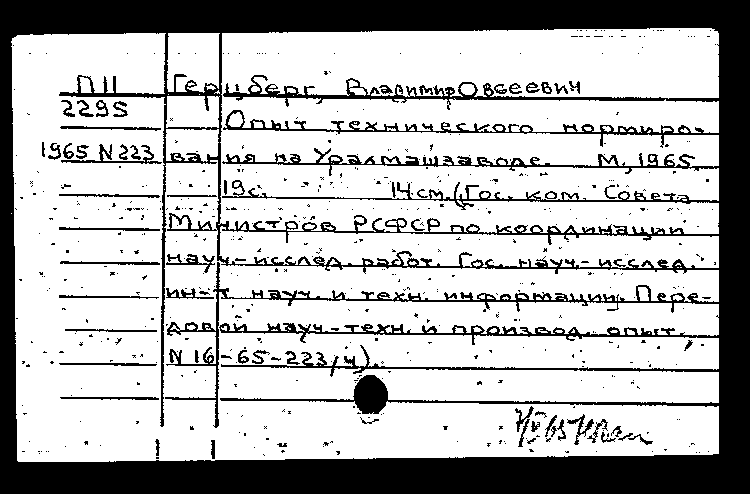 П11 Герцберг, Владимир Овсеевич
2295 Опыт технического нормиро-
1965 N223 вания на Уралмашзаводе. М., 1965.
19с. 14 см. (Гос. ком. Совета
Министров РСФСР по координации
науч.-исслед. работ. Гос. науч.-исслед.
ин-т науч. и техн. информации. Пере-
довой науч.-техн. и производ. опыт,
N 16-65-223/4).